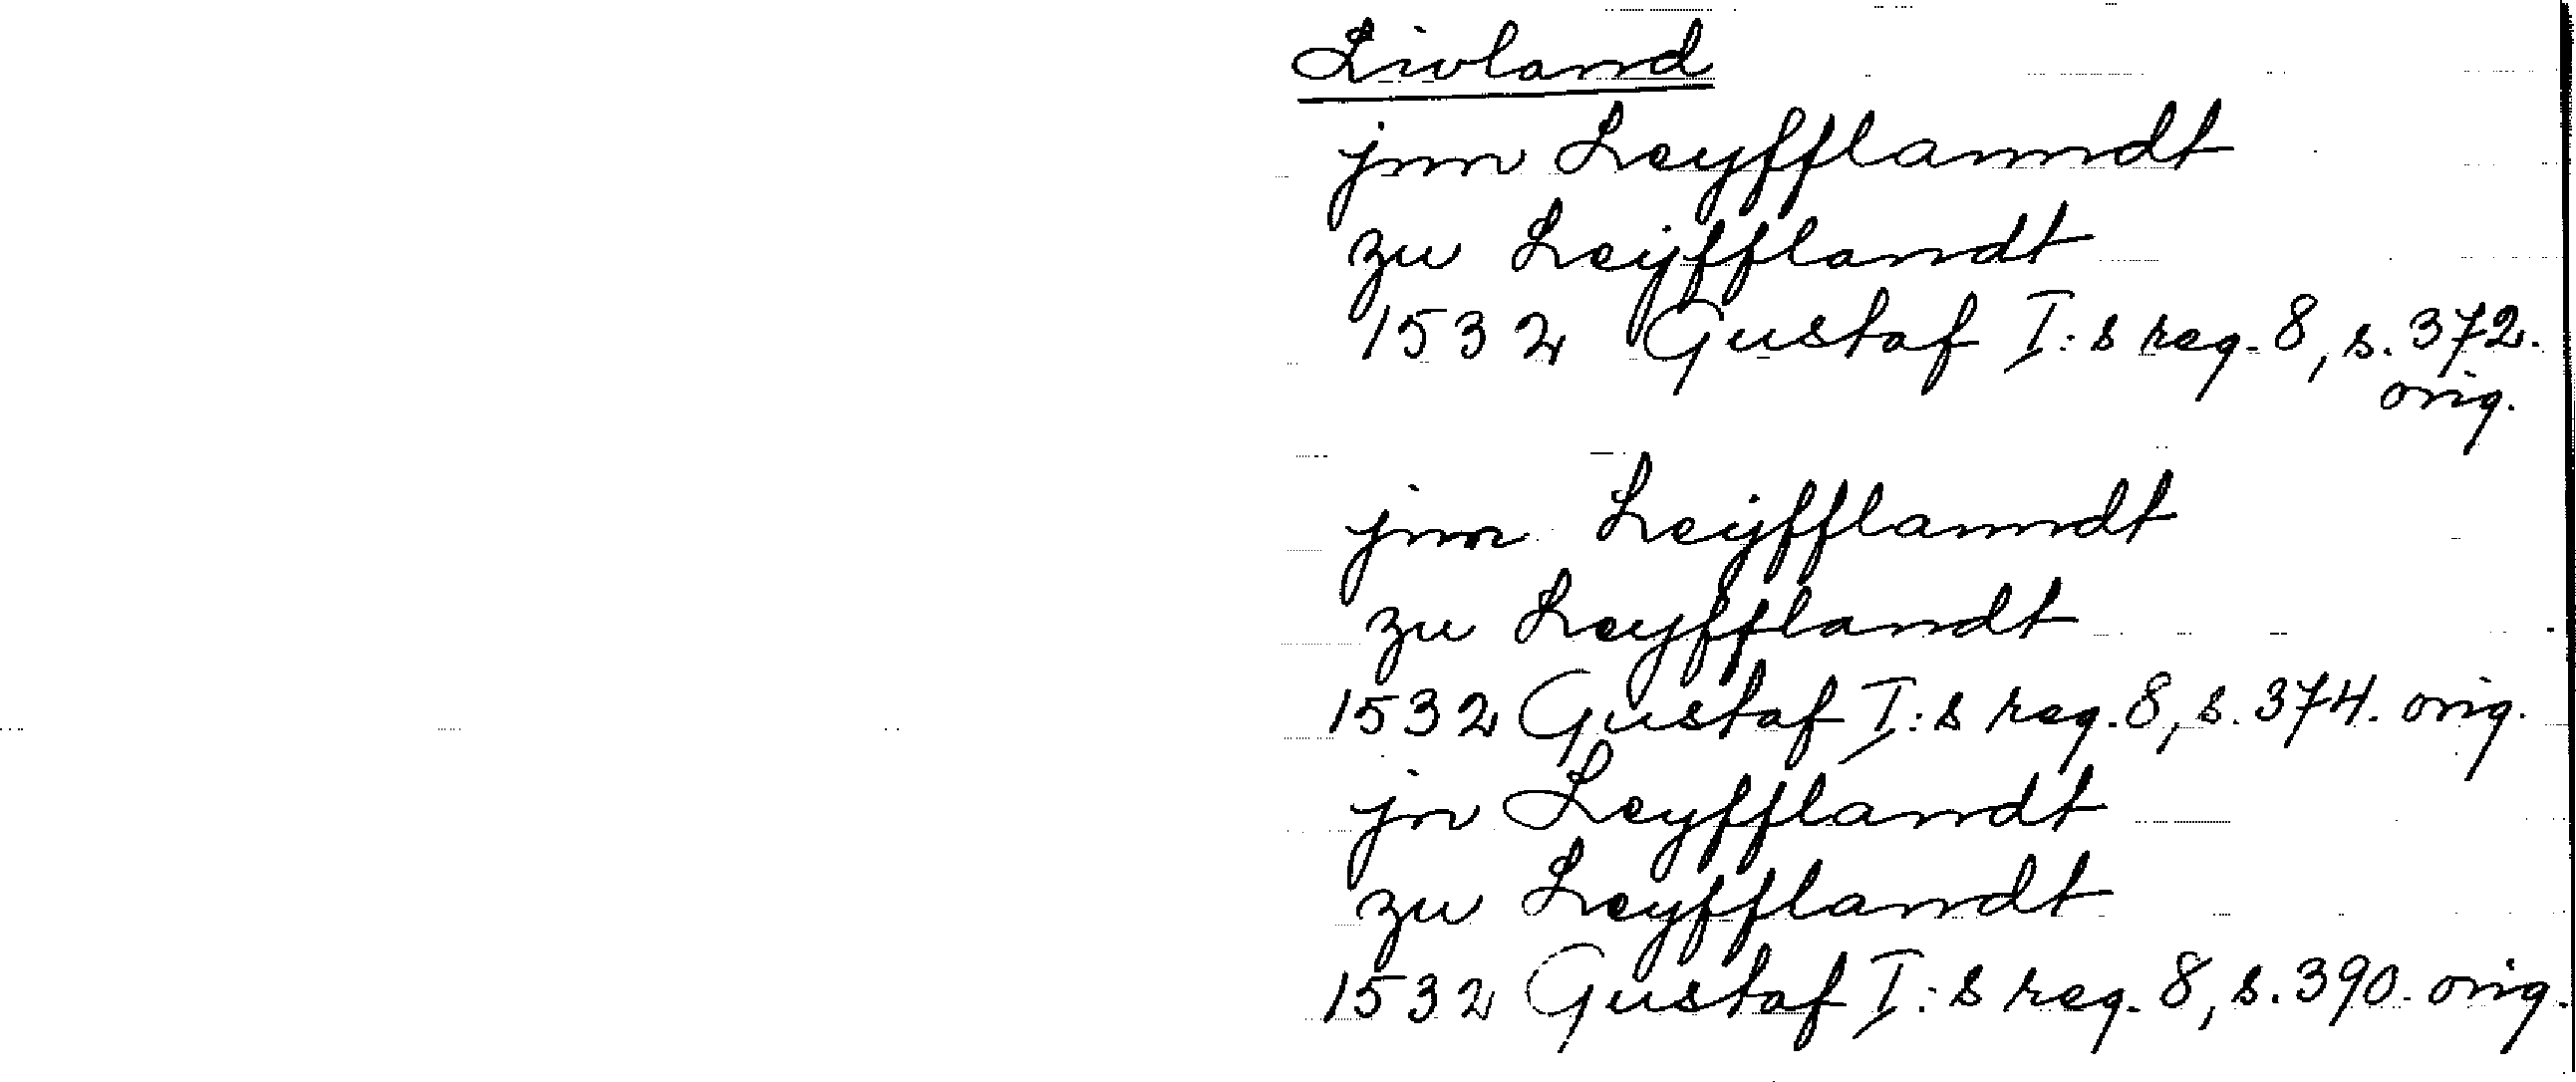 Livland
jnn Leyfflanndt
zu Leÿfflandt
1532 Gustaf I:s reg. 8, s. 372.
orig.
jnn Leÿfflanndt
zu Leyfflandt
1532 Gustaf I:s reg. 8, s. 374. orig.
jn Leyfflandt
zu Leyfflandt
1532 Gustaf I:s reg. 8, s. 390. orig.